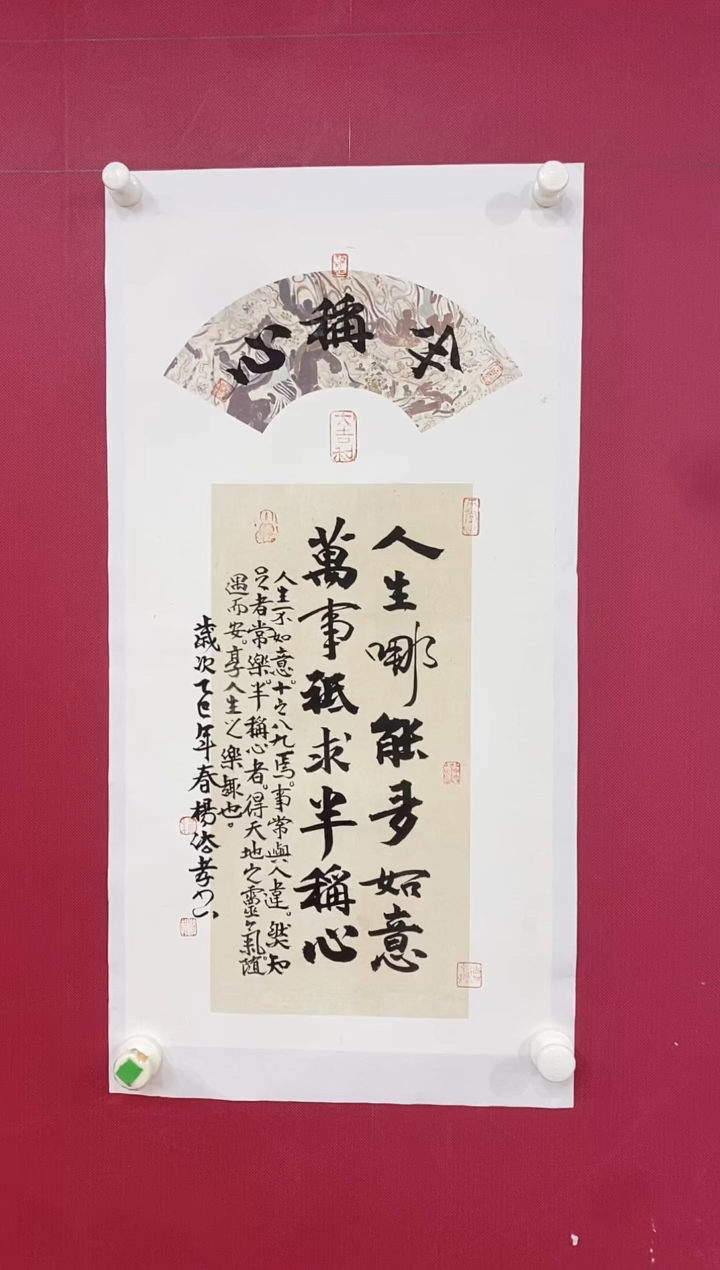 稱心
大吉利
人生哪能多如意
萬事祇求半稱心
人生不如意。十之八九焉。事常與人違。然知
足者常樂。半稱心者。得天地之靈氣。隨
遇而安。享人生之樂趣也。
歲次乙巳年春楊